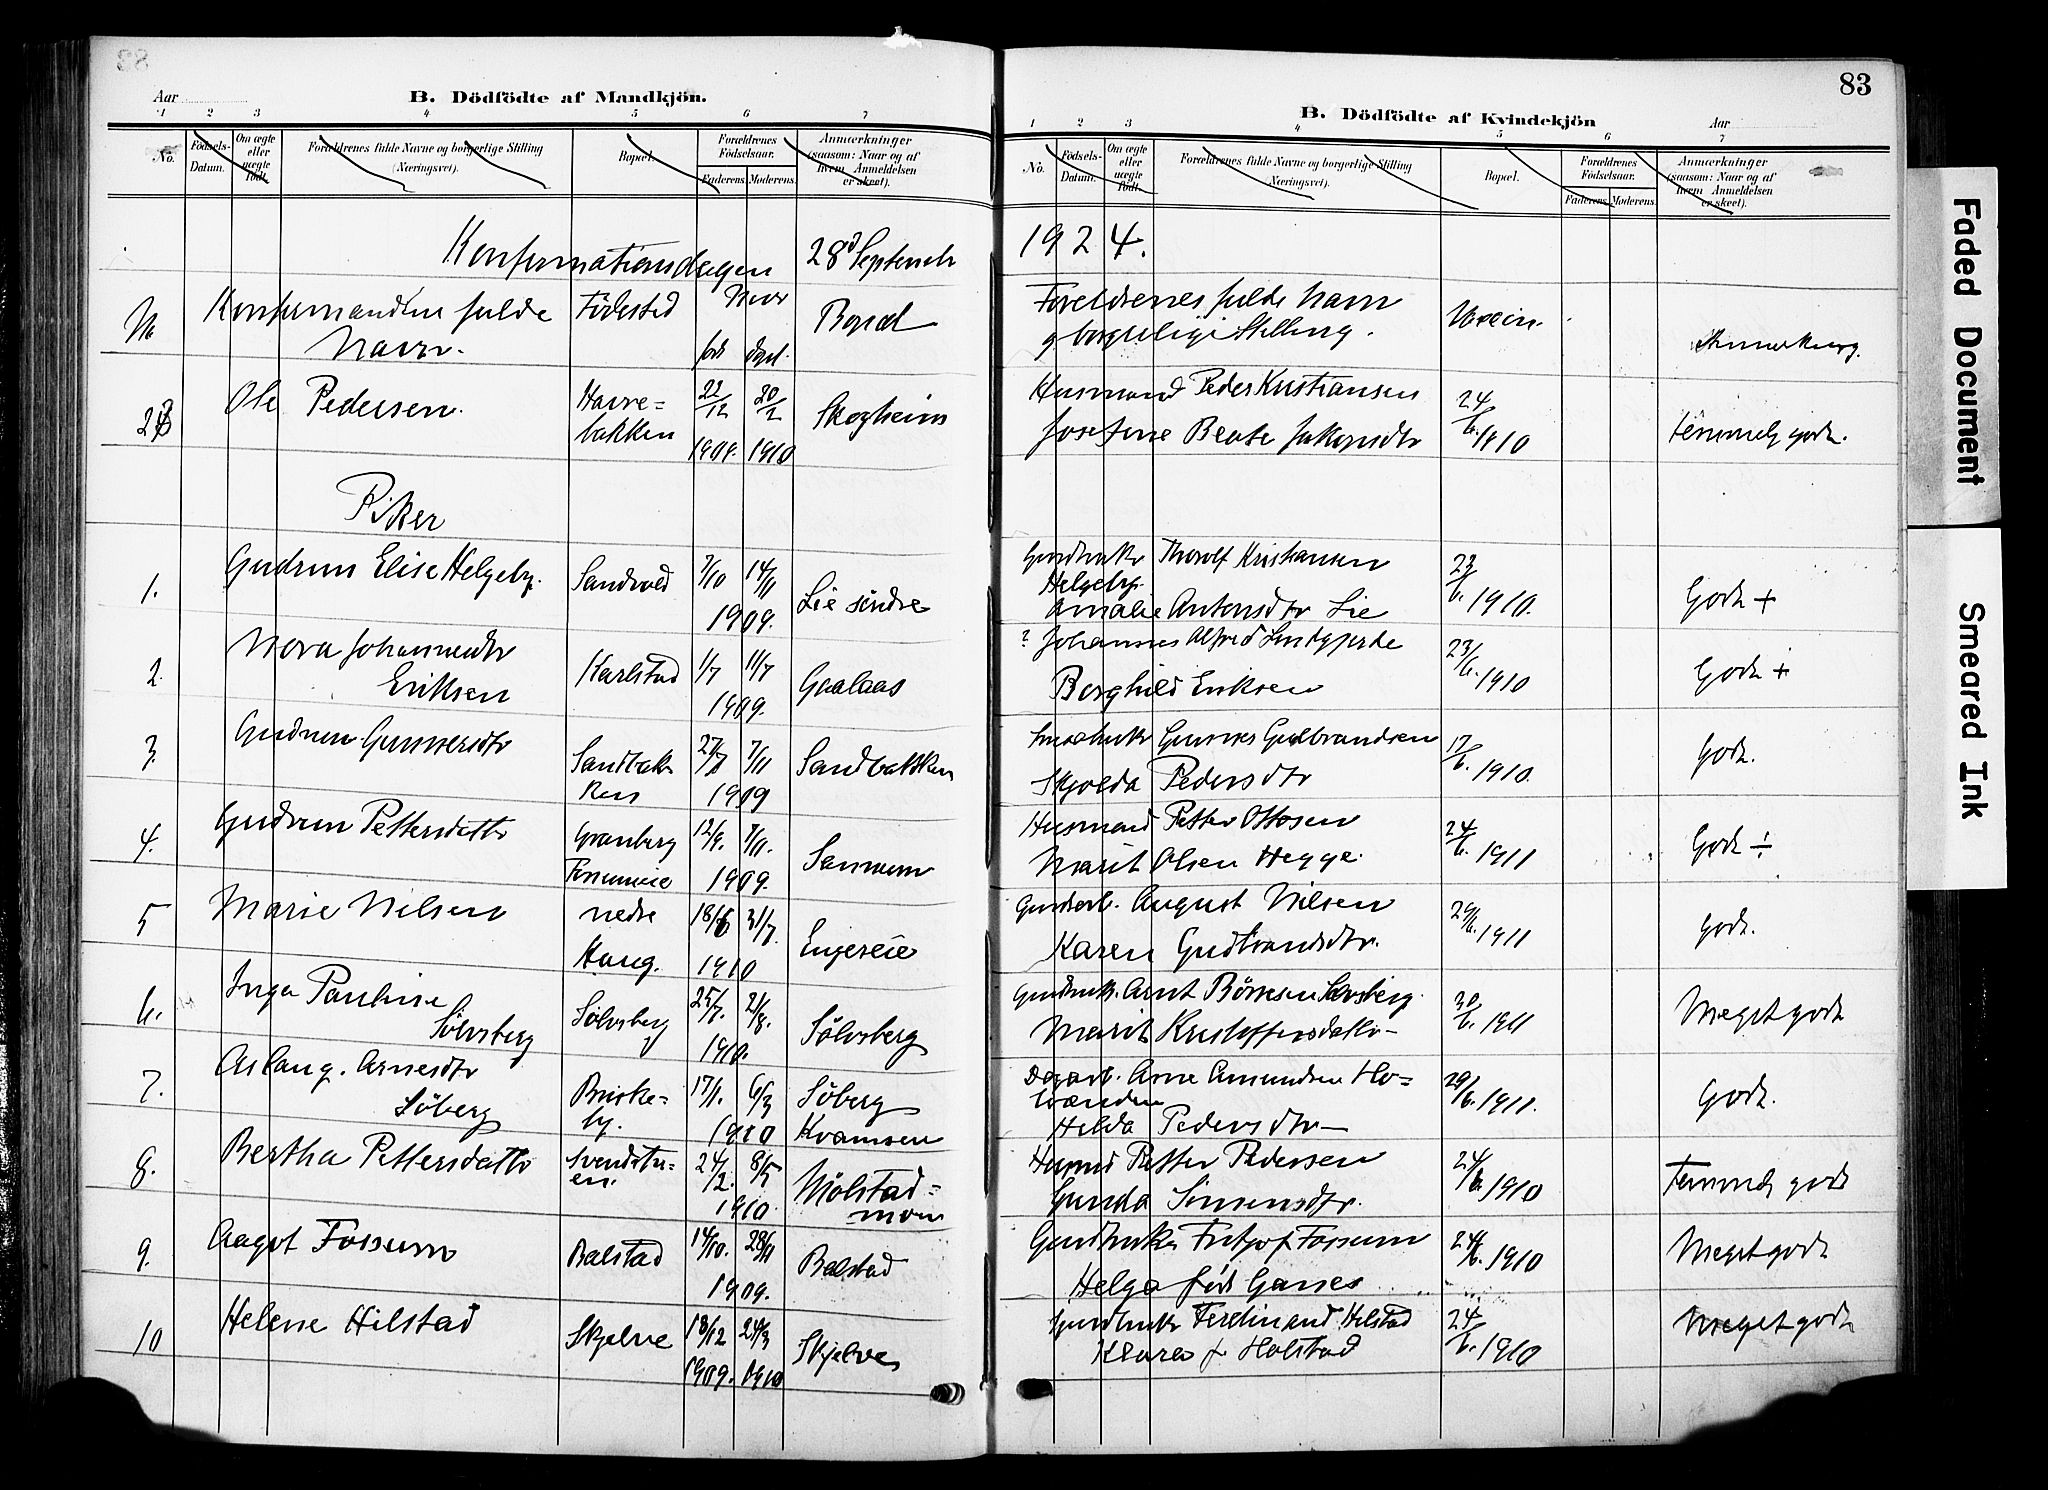 83
Aar
B. Dödfödte af Mandkjön.
1 2 3 4 5 6 7
No.
Födsels-Datum.
Om ægte eller uægte født.
Forældrenes fulde Navne og borgerlige Stilling (Næringsvei).
Bopæl.
Forældrenes Födselsaar.
Faderens. Moderens.
Anmærkninger (saasom: Naar og af hvem Anmeldelsen er skeet).
Konfirmationsdagen 28d Septembr
Konfirmandens fulde Navn.
Födested
født døpt.
Bopæl
Ole Pedersen. Havre=bakken 22/12 20/2 Skogheim
1910
Piker
1. Gudrun Elise Helgeby. Sandvold 7/10 14/11 Lie söndre
1909.
2. Nora Johannesdtr Eriksen Karlstad 1/7 11/7 Gaalaas
1909.
3. Gudrun Gunnersdtr Sandbakken 7/11 Sandbakken
1909
4. Gudrun Pettersdattr Granberg 12/9. 7/11.
1909.
5 Marie Nilsen nedre Haug. 18/6 31/7. Engereie
1910
6. Inga Pauline Sölvsberg Sölvsberg 25/7. 21/8. Sölvsberg
1910.
7. Aslaug Arnesdtr Söberg Briske=by. 17/1. 6/3 Söberg Kvamsen
1910
8. Bertha Pettersdattr 24/2. 8/5 Mölstad=moen
1910.
9. Aagot Fossum Balstad 14/10. 28/11 Balstad
1909.
10 Helene Hilstad Skjelve 18/12 24/3 Skjelve
1909. 1910
83
B. Dödfödte af Kvindekjön
Aar
1 2 3 4 5 6 7
No.
Födsels-Datum.
Om ægte eller uægte født.
Forældrenes fulde Navne og borgerlige Stilling (Næringsvei).
Bopæl.
Forældrenes Födselsaar.
Faderens. Moderens.
Anmærkninger (saasom: Naar og af hvem Anmeldelsen er skeet).
1924.
Foreldrenes fulde Navn
og borgerlige Stilling.
Vaccin.
Anmerkning.
Husmand Peder Kristiansen
Josefine Beate Jakopsdtr 24/6. 1910 temmelig godt.
Gardbruker Thorolf Kristiansen Helgeby.
Amalie Antonsdtr Lie 23/6. 1910. Godt +
? Johannes Alfred
Borghild Eriksen 23/6. 1910 Godt +
Gunner Gulbrandsen
Skjolda Pedersdtr 17/6. 1910. Godt.
Husmand Petter Ottosen
Marit Olsen Hegge. 24/6. 1911 Godt ÷
August Nilsen
Karen Gudbrandsdtr. 29/6. 1911 Godt.
Gardbruk. Arnt Börresen Sölvsberg.
Marit Kristoffersdattr 30/6. 1911 Meget godt
Dagarb. Arne Amundsen
Helda Pedersdtr 29/6. 1911. Godt.
Husmd Petter Pedersen
Gunda Simensdtr. 24/6 1910 Temmelig godt
Gardbruker Fritjof Fossum
Helga född Garnes 24/6. 1910 Meget godt
Gardbruker Ferdinand Hilstad
Klara f. Holstad 24/6. 1910 Meget godt
Faded Document
Smeared Ink